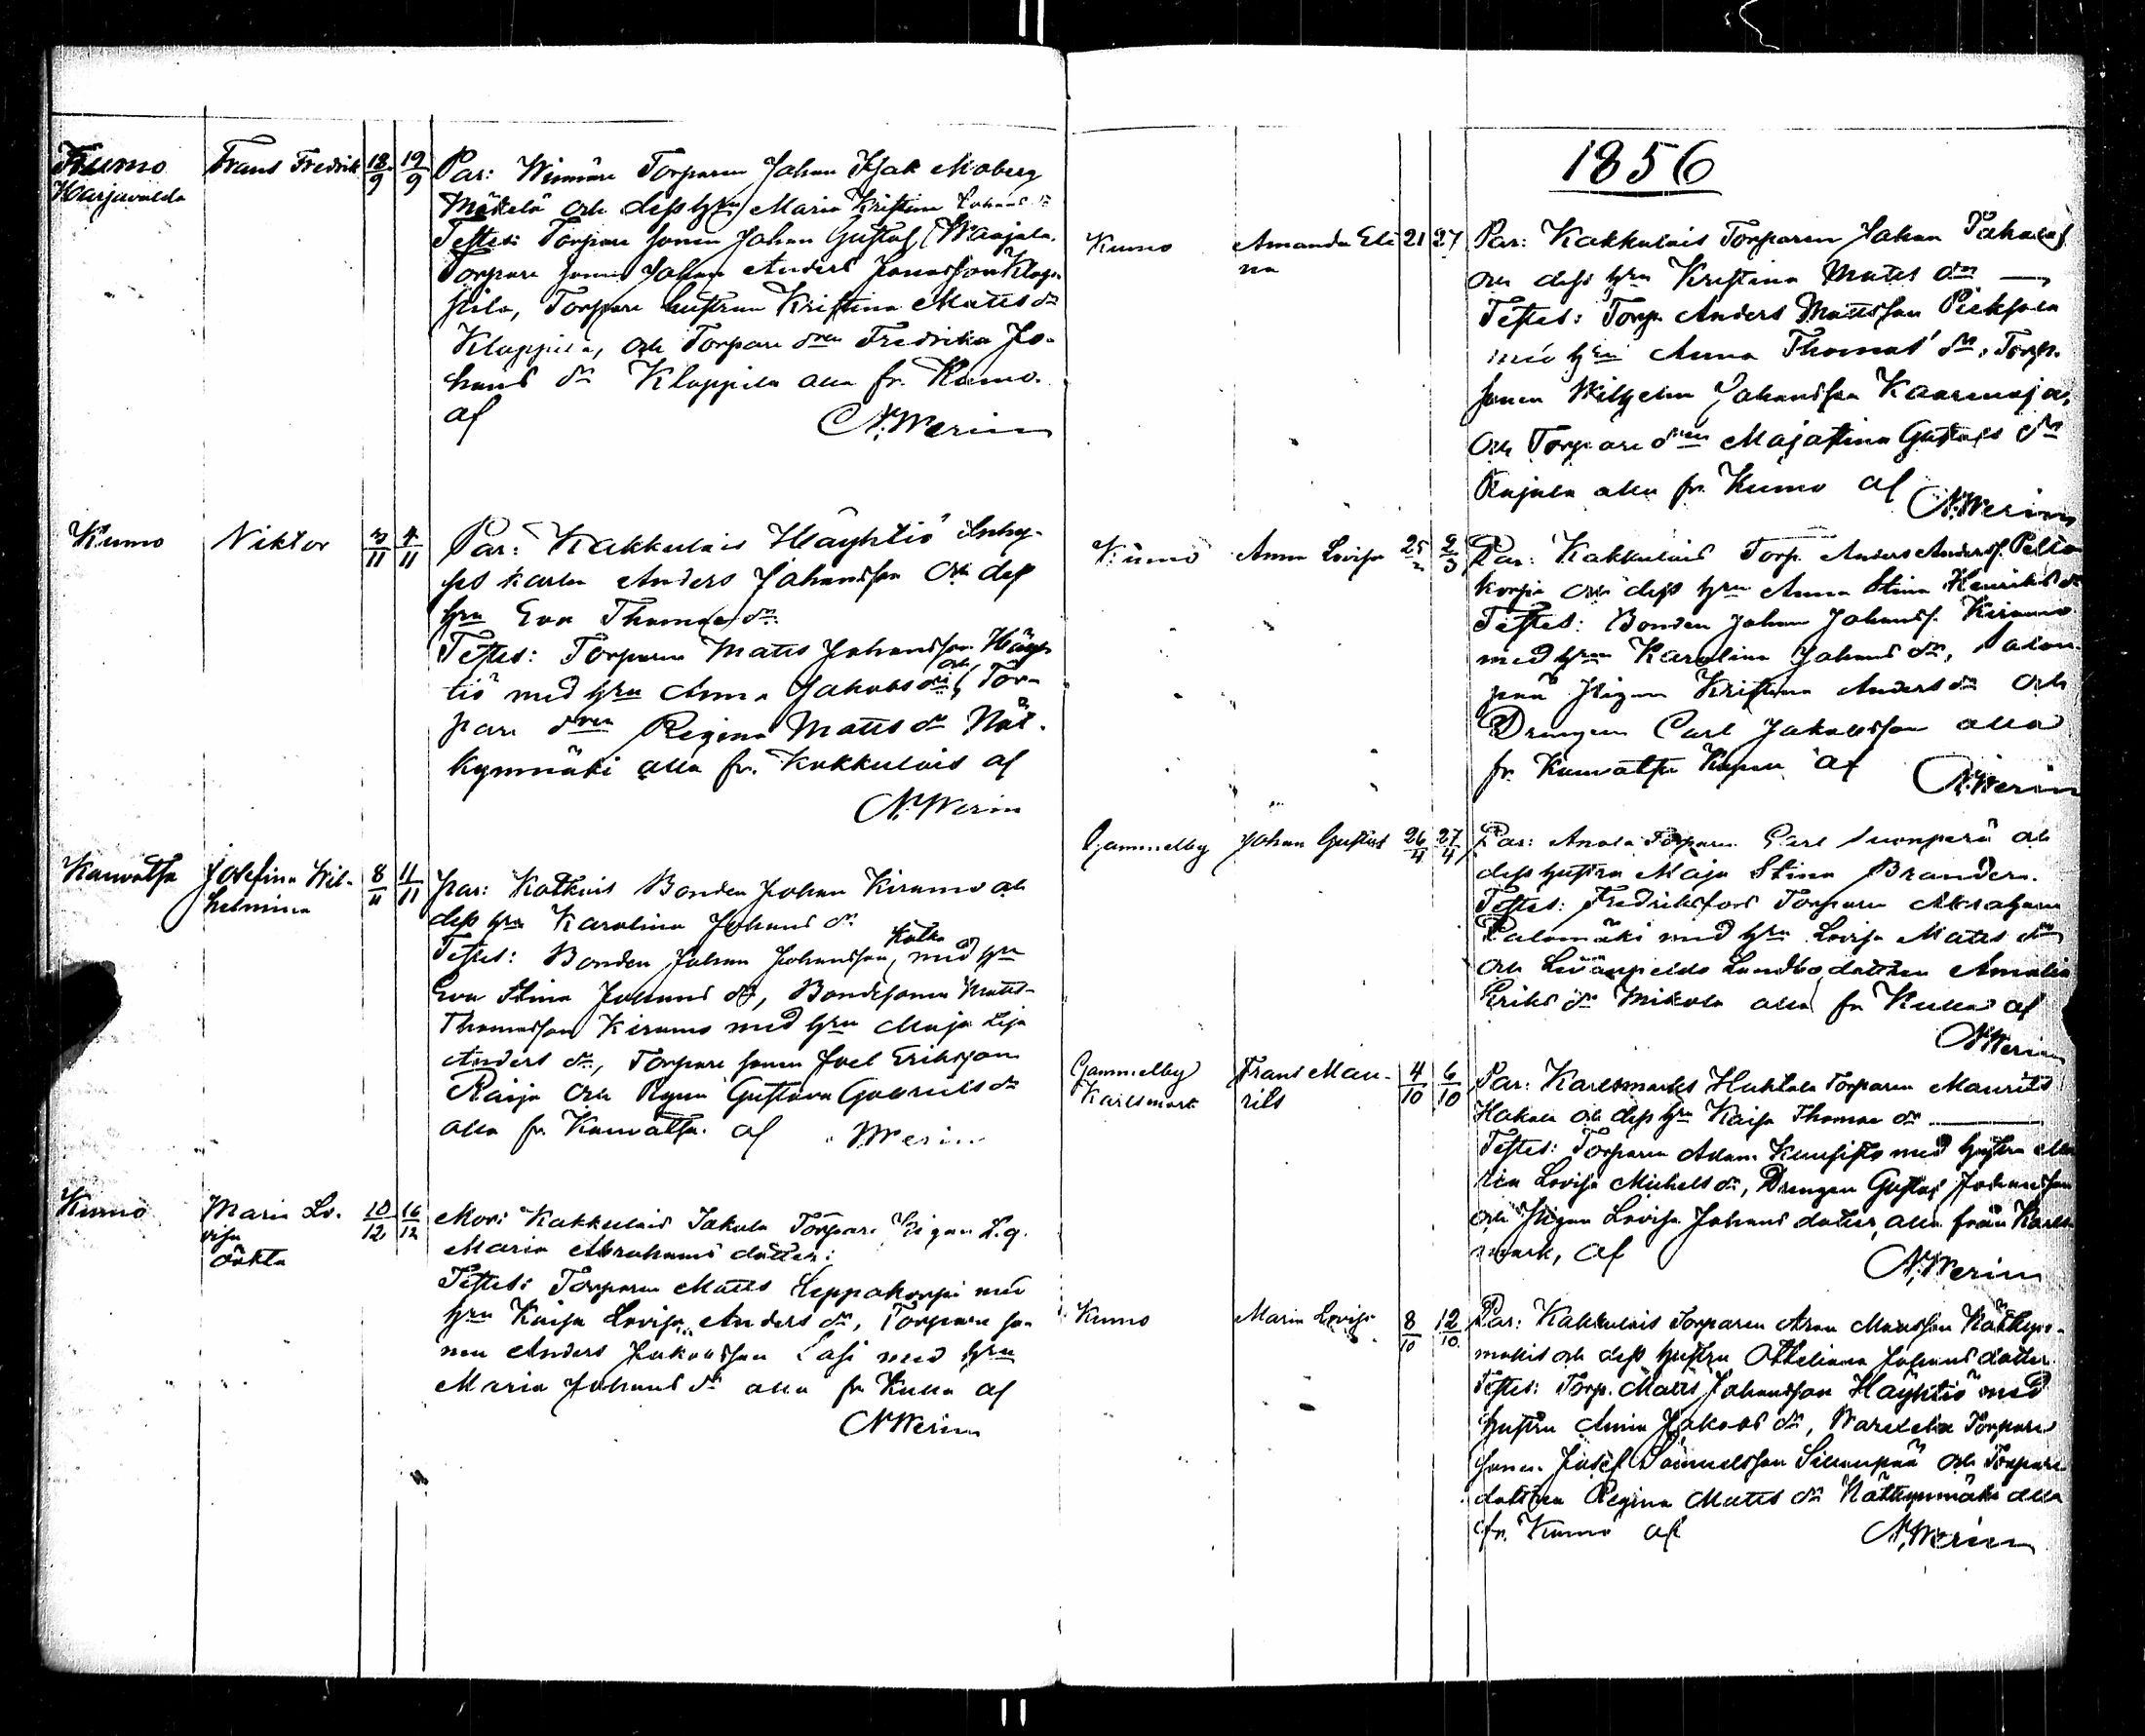 Kumo Frans Fredrik 18/9 19/9 Par: Torparen Johan Isak Moberg
Harjavalda Mäkelä och dess hru Maria Kristina Johans dr
Testes: Torpare sonen Johan Gustaf
Torpare sonen Johan Anders Jonasson
Torpare hustrun Kristina Matts dr
Klappila, och Torpare dren Fredrika Jo-
hans dr Klappila alla fr. Kumo.
af N. Werin
Kumo Viktor 3/11 4/11 Par: Kakkulais Häyhtiö Inhy-
ses karlen Anders Johansson och dess
hru Eva Thomas dr.
Testes: Torparen Matts Johansson Häyh-
tiö med hru Anna Jakobs dr, och Tor-
pare dren Regina Matts dr Nät-
kynmäki alla fr. Kakkulais af
N. Werin
Kauvatsa Josefina Wil- 8/11 11/11 Par: Katkuis Bonden Johan Kiramo och
helmina dess hru Karolina Johans dr
Testes: Bonden Johan Johansson Kulta med hru
Eva Stina Johans dr, Bondesonen Matts
Thomasson Kiramo med hru Maja Lisa
Anders dr, Torpare sonen Joel Eriksson
Raija och Pigan Gustava Gabriels dr
alla fr Kauvatsa. af N Werin
Kumo Maria Lo- 10/12 16/12 Mor: Kakkulais Torpare Pigan
visa Maria Abrahams dotter:
oäkta
Testes: Torparen Matts Leppäkorpi med
hru Kaisa Lovisa Anders dr, Torpare so-
nen Anders Jakobsson Lasi med hru
Maria Johans dr alla fr Kulla af
N Werin
1856
Kumo Amanda Eli- 21 27 Par: Kakkulais Torparen Johan
na och dess hru Kristina Matts dr
Testes: Torp. Anders Mattsson
med hru Anna Thomas dr, Torp.
sonen Wilhelm Johansson
och Torpare dren Majastina Gustafs dr
Rajala alla fr. Kumo af
N. Werin
Kumo Anna Lovisa 25/2 2/3 Par: Kakkulais Torp. Anders Anderss. Pelto-
korpi och dess hru Anna Stina Henriks dr
Testes: Bonden Johan Johanss. Kiramo
med hru Karolina Johans dr,
pää Pigan Kristina Anders dr och
Drengen Carl Jakobsson alla
fr. Kauvatsa af
N. Werin
Gammelby Johan Gustaf 26/4 27/4 Par: Anola Torparen Carl Suonperä och
dess hustru Maja Stina Branders.
Testes: Fredriksfors Torparen Abraham
Palomäki med hru Lovisa Matts dr
och Landbodottren Amalia
Eriks dr Mikola alla fr Kulla af
N Werin
Gammelby Frans Mau- 4/10 6/10 Par: Karlsmarks Huhtala Torparen Maurits
Karlsmark rits Hakala och dess hru Kaisa Thomas dr
Testes: Torparen Adam Kuusisto med hustru Ma-
ria Lovisa Michels dr, Drengen Gustaf Johansson
och Pigan Lovisa Johans dotter, alla från Karls-
mark, af
N. Werin
Kumo Maria Lovisa 8/10 12/10 Par: Kakkulais Torparen Aron Mattsson Nätkyn-
mäki och dess hustru Otteliana Johans dotter
Testes: Torp. Matts Johansson Häyhtiö med
hustru Anna Jakobs dr, Torpare
sonen Josef Samuelsson Sillanpää och Torpare
dottren Regina Matts dr Nätkynmäki alla
fr. Kumo af N. Werin